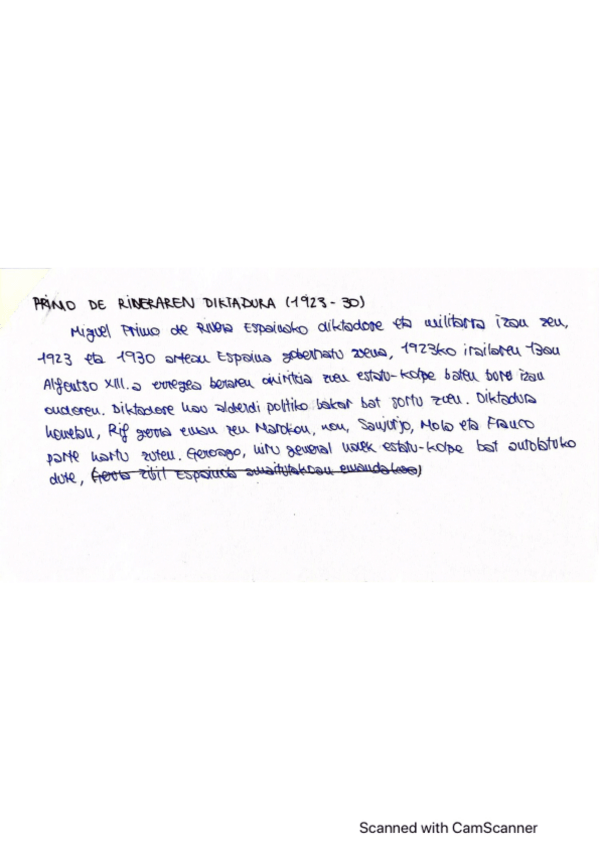 PRIMO DE RIVERAREN DIKTADURA (1923-30)
Miguel Primo de Rivera Espainiako diktadore eta militarra izan zen,
1923 eta 1930 artean Espainia gobernatu zuena, 1923ko irailaren 13an
Alfontso XIII.a erregea beraren oniritzia zuen estatu-kolpe baten buru izan
ondoren. Diktadore hau alderdi politiko bakar bat sortu zuen. Diktadura
honetan, Rif gerra eman zen Marokon, non, Sanjurjo, Mola eta Franco
parte hartu zuten. Geroago, hiru general hauek estatu-kolpe bat antolatuko
dute, (Gerra zibil Espainia amaitutakoan emandakoa)
Scanned with CamScanner